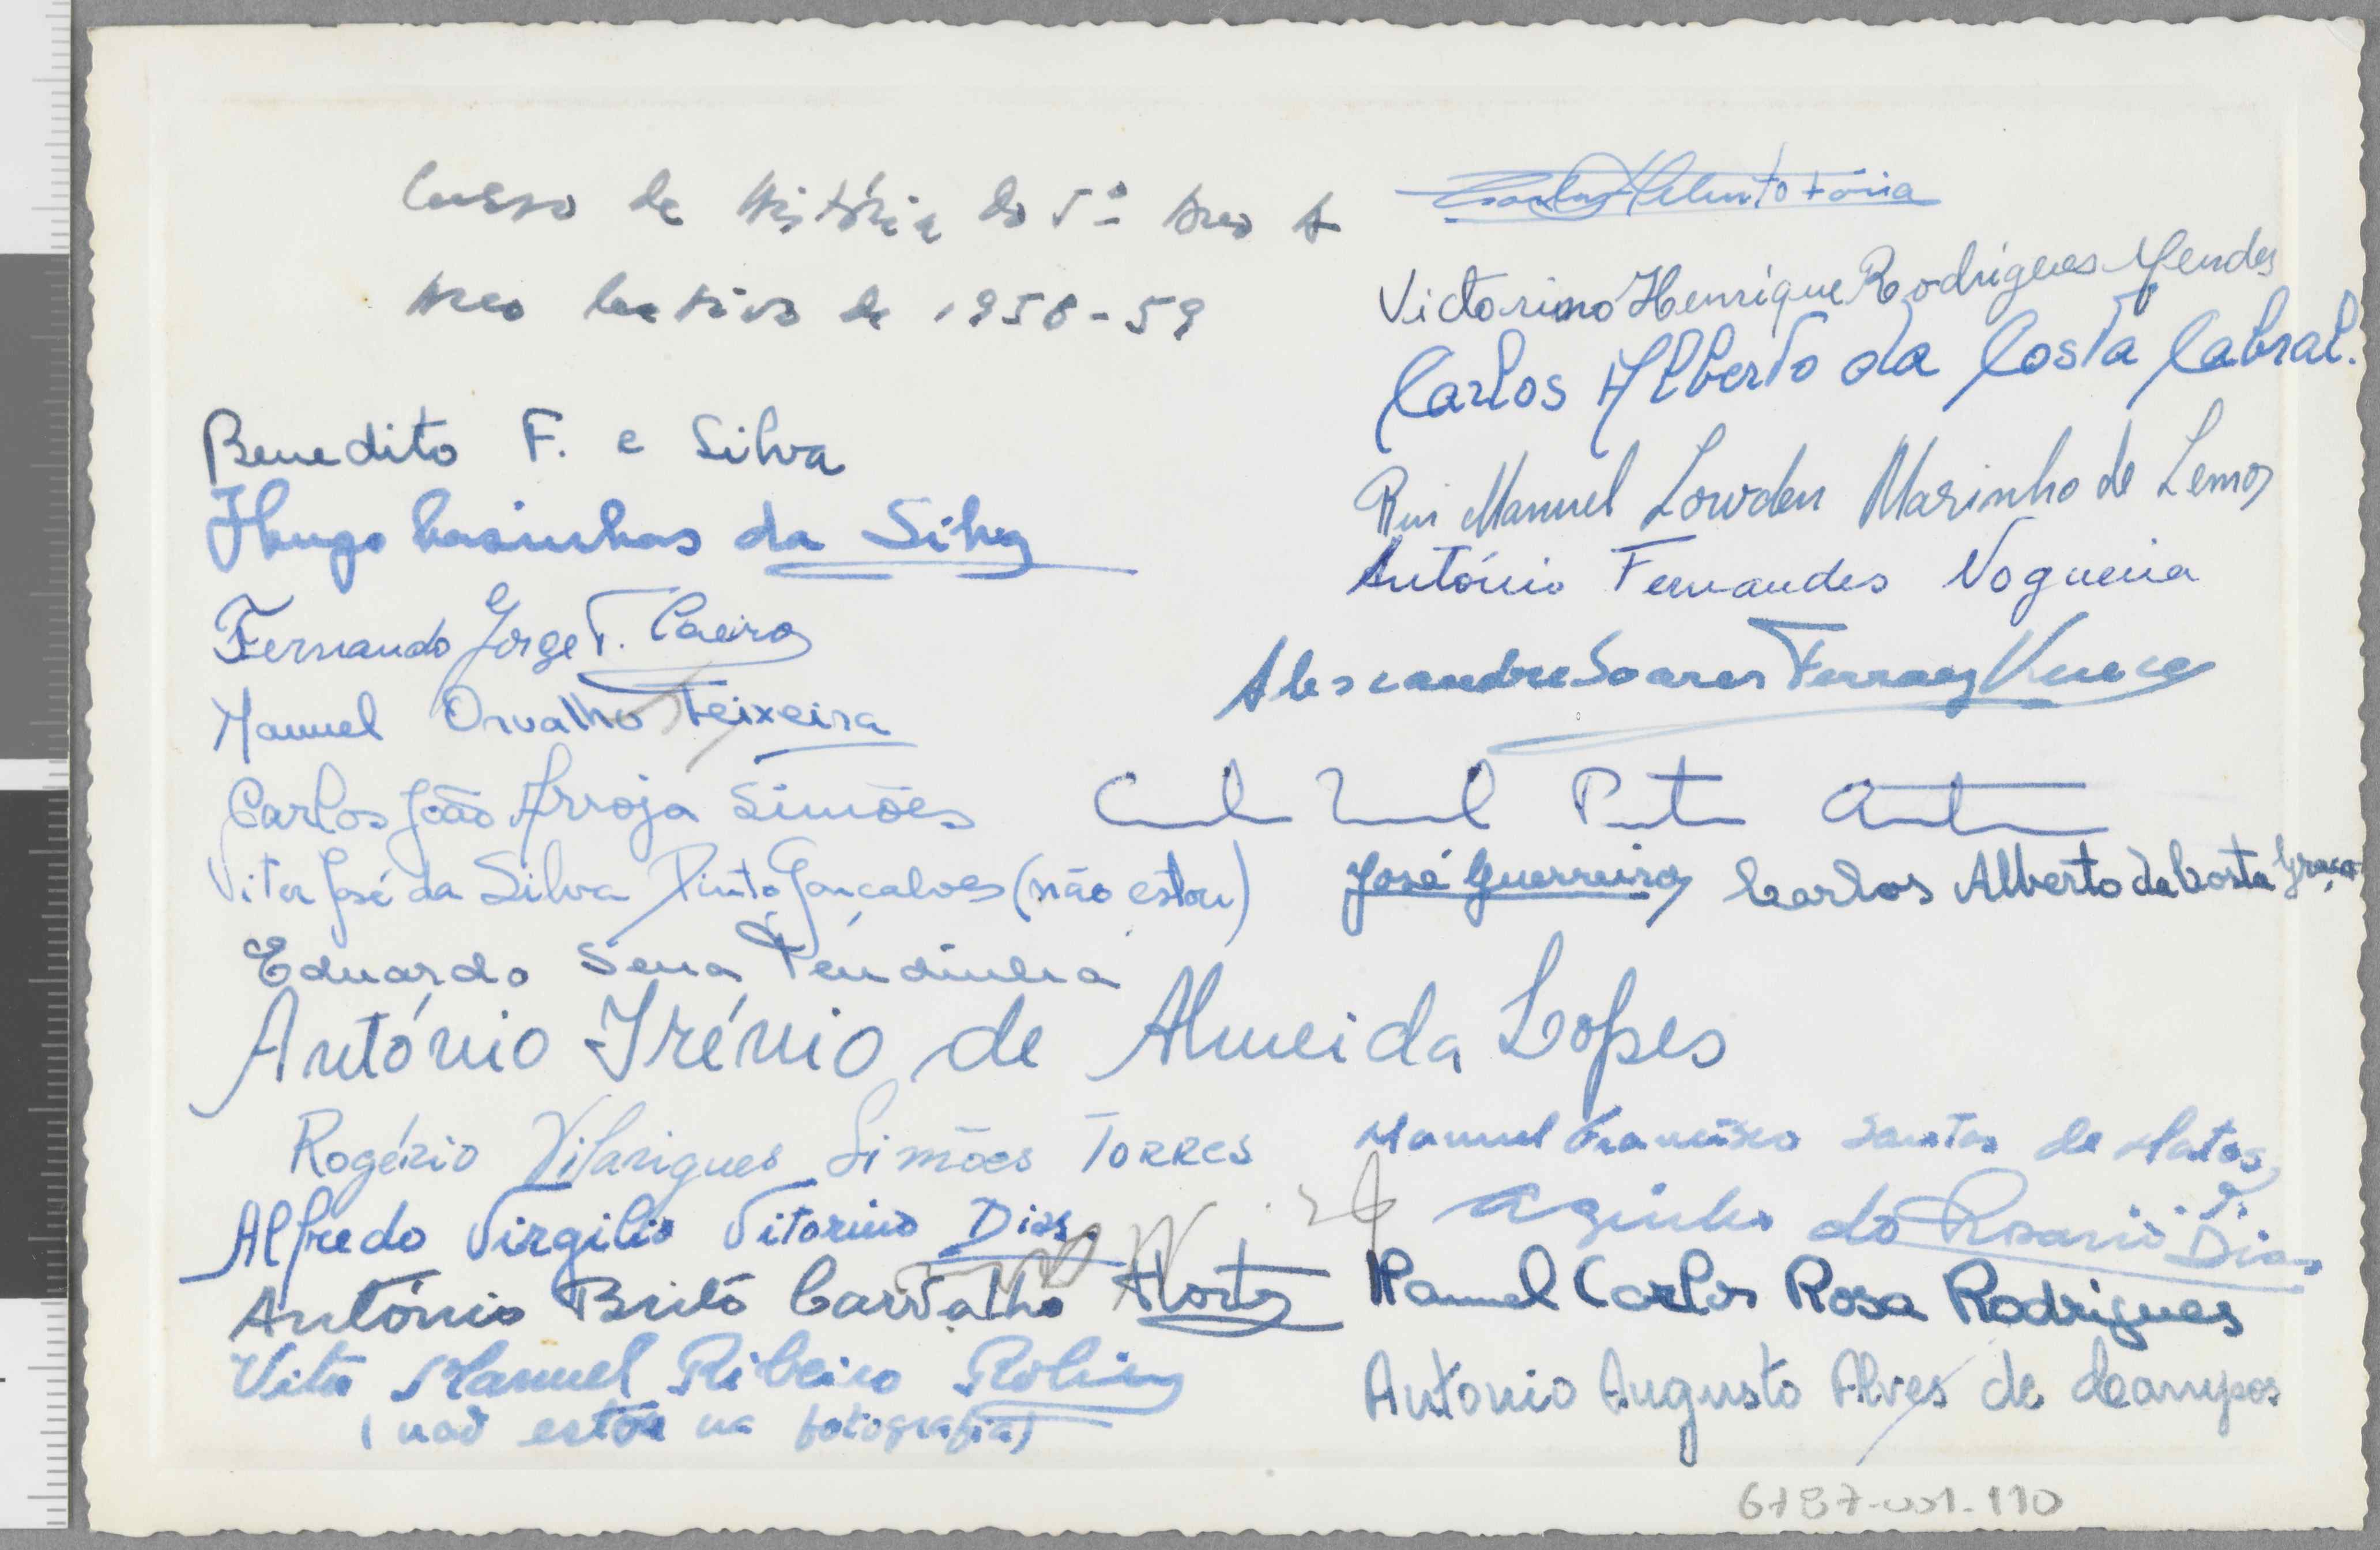 Curso de História do 5º Ano A
Ano lectivo de 1958-59
Benedito F. e Silva
Hugo Casinhas da Silva
Fernando Jorge T. Caeiro
Manuel Orvalho Teixeira
Carlos João Arroja Simões
Vitor José da Silva Pinto Gonçalves (não estou)
Eduardo Sena Pendinha
António Irénio de Almeida Lopes
Rogério Vilarigues Simões Torres
Alfredo Virgílio Vitorino Dias
António Brito Carvalho Horta
Vitor Manuel Ribeiro Rolim
(não estou na fotografia)
Carlos Alberto Fária
Victorino Henrique Rodrigues Mendes
Carlos Alberto da Costa Cabral.
Rui Manuel Lowden Marinho de Lemos
António Fernandes Nogueira
Alexandre Soares Ferraz
Pinto
José Guerreiro
Carlos Alberto da Costa Graça
Manuel Francisco Santos de Matos
Azinho do Rosario Dias
Manuel Carlos Rosa Rodrigues
António Augusto Alves de Campos
6787-001-110